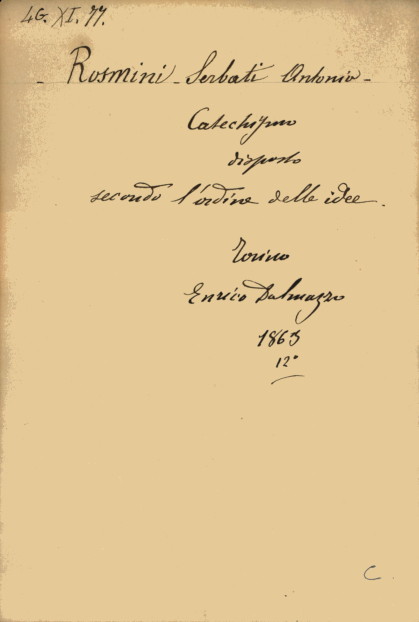 46. XI. 77.
- Rosmini - Serbati Antonio -
Catechismo
disposto
secondo l'ordine delle idee.
Torino
Enrico Dalmazzo
1863
12°
C